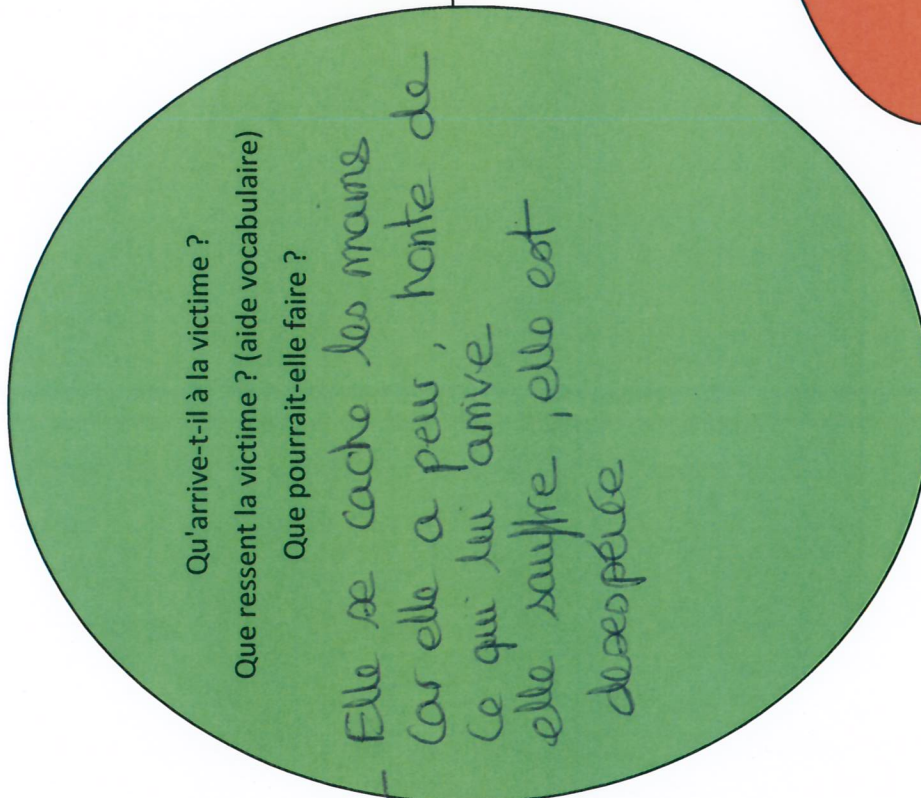 Qu'arrive-t-il à la victime ?
Que ressent la victime ? (aide vocabulaire)
Que pourrait-elle faire ?
- Elle se cache les mains
Car elle a peur, honte de
Ce qui lui arrive
elle souffre, elle est
desespérée